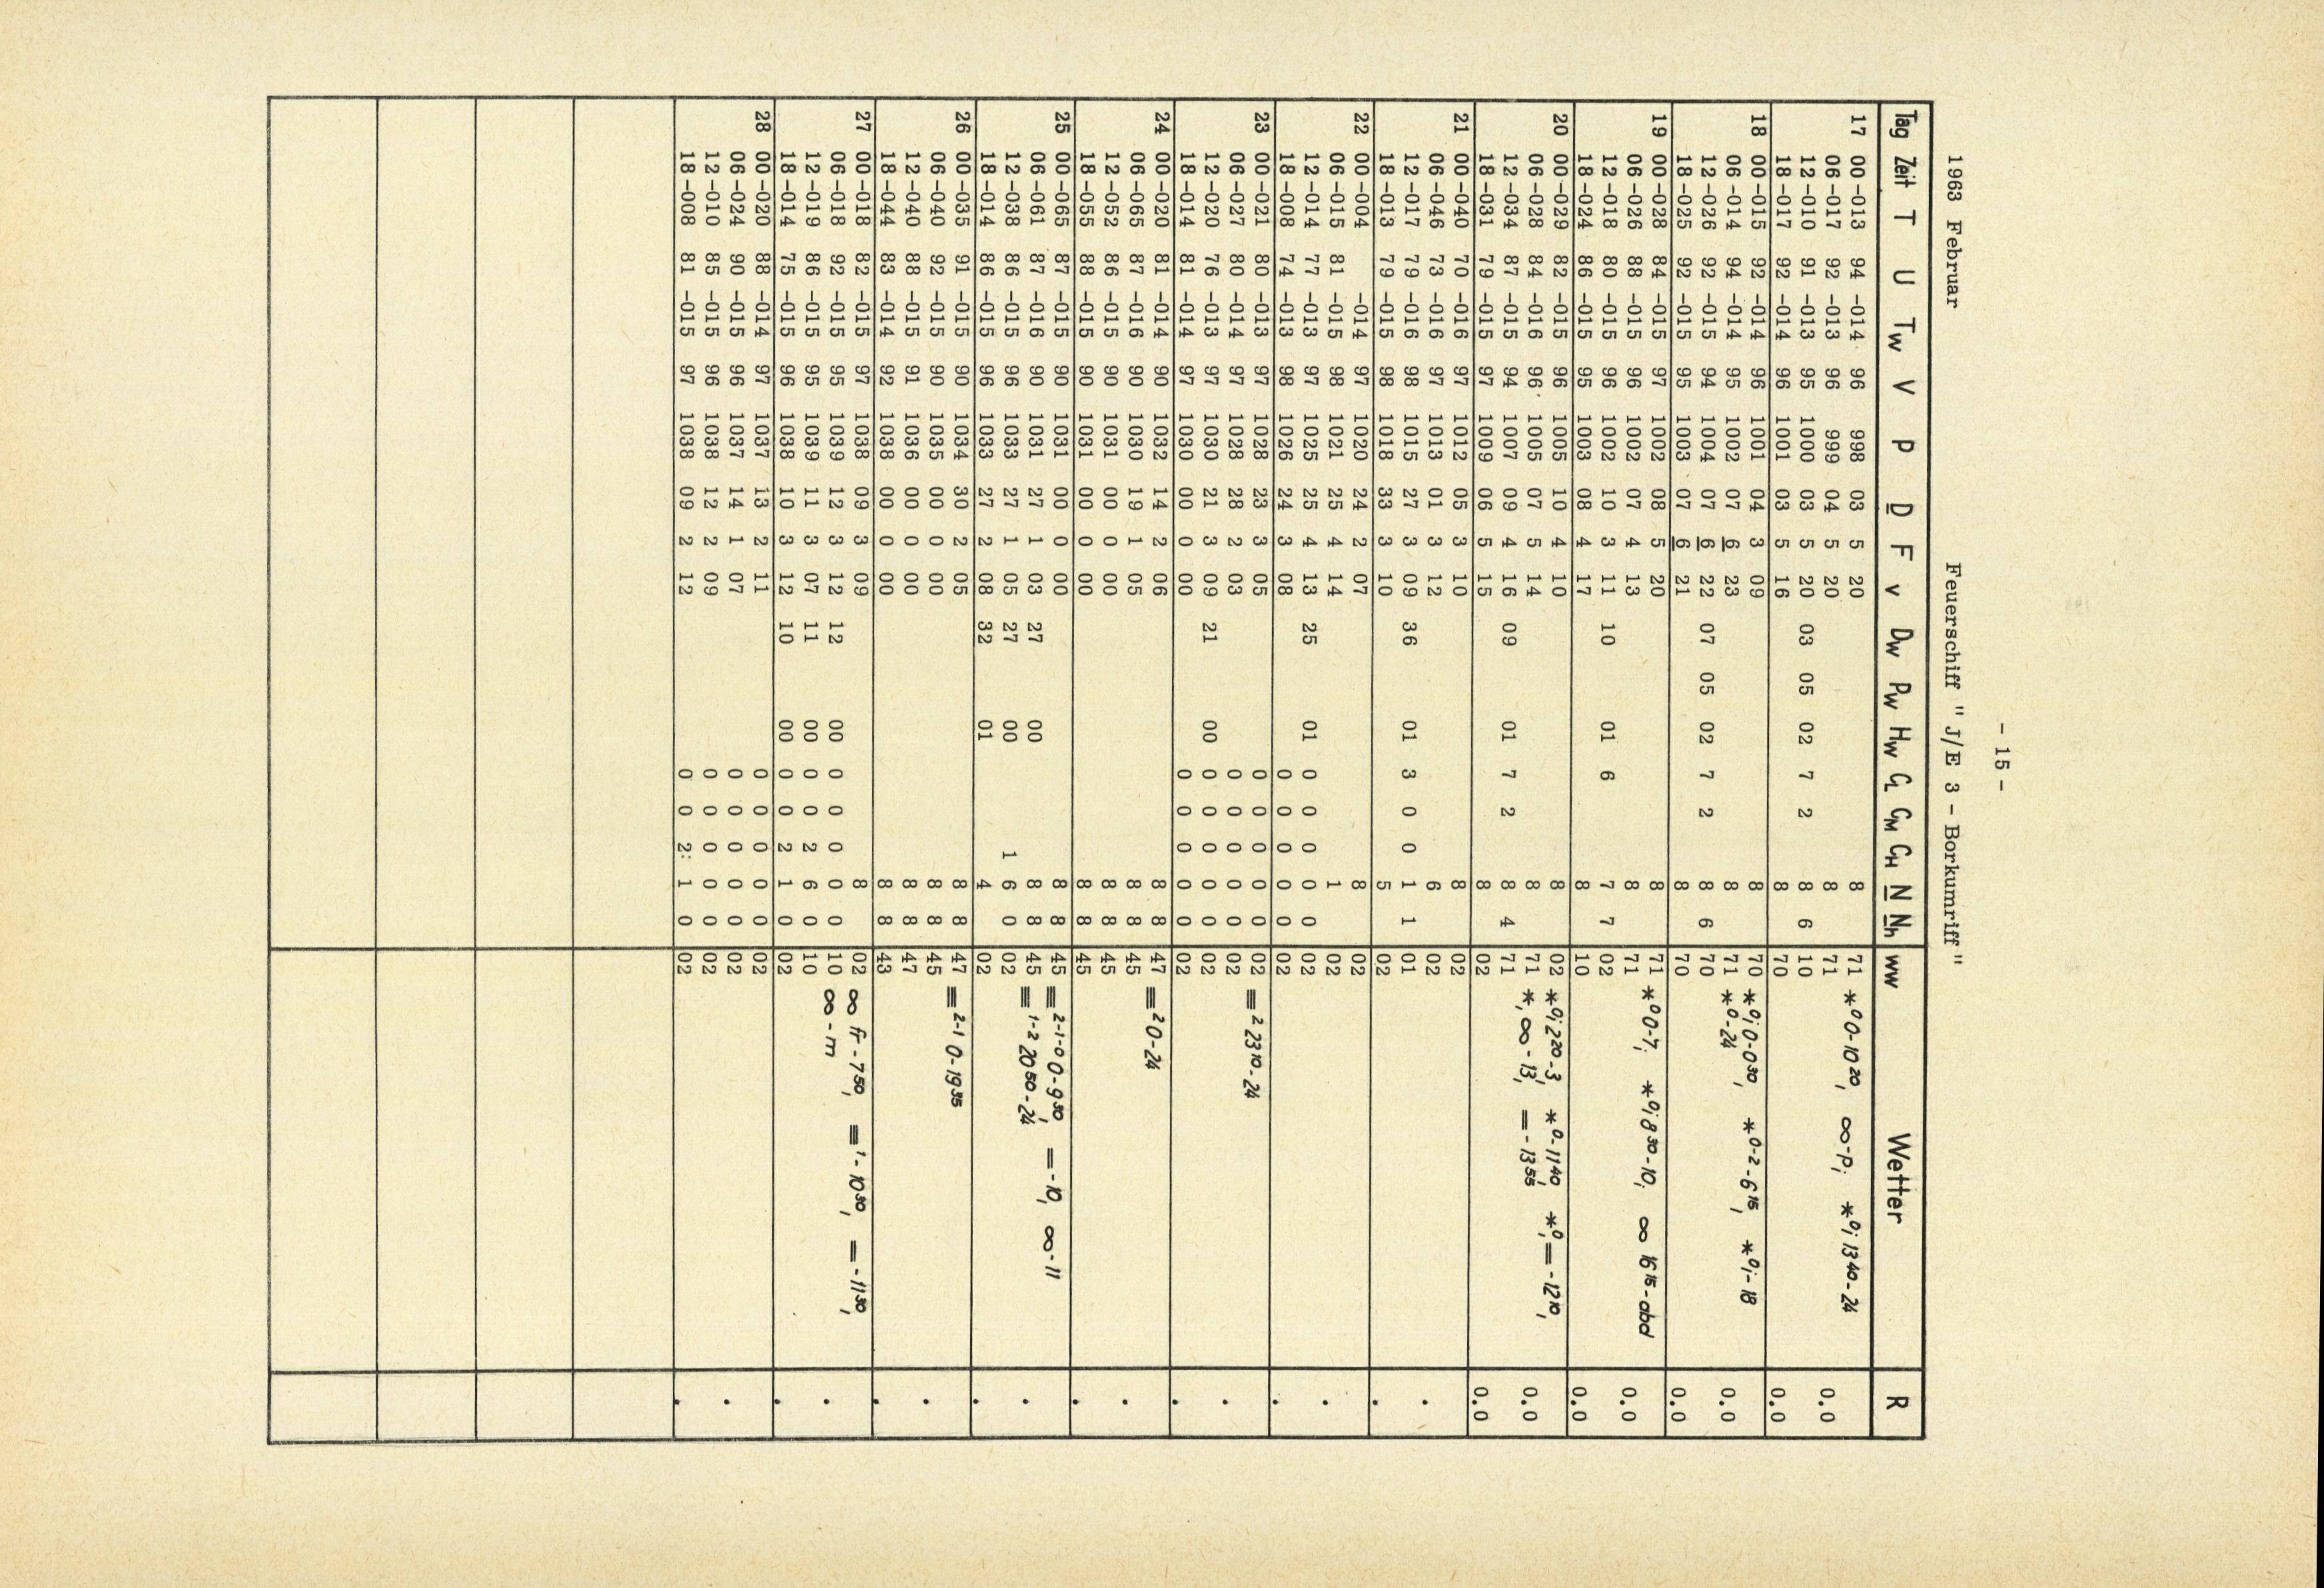 - 15 -
1963 Februar Feuerschiff " J/E 3 - Borkumriff "
Tag Zeit T U Tw V P D F v Dw Pw Hw CL CM CH N Nh ww Wetter R
17 00 -013 94 -014 96 998 03 5 20 8 71 *⁰ 0-10²⁰, ∞-p; *⁰i 13⁴⁰-24
06 -017 92 -013 96 999 04 5 20 8 71 0.0
12 -010 91 -013 95 1000 03 5 20 03 05 02 7 2 8 6 10
18 -017 92 -014 96 1001 03 5 16 8 70 0.0
18 00 -015 92 -014 96 1001 04 3 09 8 70 *⁰i 0-0³⁰, *⁰⁻² -6¹⁵, *⁰i- 18
06 -014 94 -014 95 1002 07 6 23 8 71 *⁰-24 0.0
12 -026 92 -015 94 1004 07 6 22 07 05 02 7 2 8 6 70
18 -025 92 -015 95 1003 07 6 21 8 70 0.0
19 00 -028 84 -015 97 1002 08 5 20 8 71 *⁰ 0-7, *⁰i 8³⁰-10, ∞ 16¹⁵-abd
06 -026 88 -015 96 1002 07 4 13 8 71 0.0
12 -018 80 -015 96 1002 10 3 11 10 01 6 7 7 02
18 -024 86 -015 95 1003 08 4 17 8 10 0.0
20 00 -029 82 -015 96 1005 10 4 10 8 02 *⁰i 2²⁰-3, *⁰-11⁴⁰, *⁰,= -12¹⁰,
06 -028 84 -016 96 1005 07 5 14 8 71 *, ∞ - 13, = - 13⁵⁵ 0.0
12 -034 87 -015 94 1007 09 4 16 09 01 7 2 8 4 71
18 -031 79 -015 97 1009 06 5 15 8 02 0.0
21 00 -040 70 -016 97 1012 05 3 10 8 02
06 -046 73 -016 97 1013 01 3 12 6 02 .
12 -017 79 -016 98 1015 27 3 09 36 01 3 0 0 1 1 01
18 -013 79 -015 98 1018 33 3 10 5 02 .
22 00 -004 -014 97 1020 24 2 07 8 02
06 -015 81 -015 98 1021 25 4 14 1 02 .
12 -014 77 -013 97 1025 25 4 13 25 01 0 0 0 0 0 02
18 -008 74 -013 98 1026 24 3 08 0 0 0 0 0 02 .
23 00 -021 80 -013 97 1028 23 3 05 0 0 0 0 0 02 ≡² 23¹⁰-24
06 -027 80 -014 97 1028 28 2 03 0 0 0 0 0 02 .
12 -020 76 -013 97 1030 21 3 09 21 00 0 0 0 0 0 02
18 -014 81 -014 97 1030 00 0 00 0 0 0 0 0 02 .
24 00 -020 81 -014 90 1032 14 2 06 8 8 47 ≡² 0-24
06 -065 87 -016 90 1030 19 1 05 8 8 45 .
12 -052 86 -015 90 1031 00 0 00 8 8 45
18 -055 88 -015 90 1031 00 0 00 8 8 45 .
25 00 -065 87 -015 90 1031 00 0 00 8 8 45 ≡²⁻¹⁻⁰ 0-9³⁰, = -10, ∞-11
06 -061 87 -016 90 1031 27 1 03 27 00 8 8 45 ≡¹⁻² 20⁵⁰-24 .
12 -038 86 -015 96 1033 27 1 05 27 00 1 6 0 02
18 -014 86 -015 96 1033 27 2 08 32 01 4 02 .
26 00 -035 91 -015 90 1034 30 2 05 8 8 47 ≡²⁻¹ 0-19³⁵
06 -040 92 -015 90 1035 00 0 00 8 8 45 .
12 -040 88 -015 91 1036 00 0 00 8 8 47
18 -044 83 -014 92 1038 00 0 00 8 8 43 .
27 00 -018 82 -015 97 1038 09 3 09 8 02 ∞ fr -7⁵⁰, ≡¹- 10³⁰, = -11³⁰,
06 -018 92 -015 95 1039 12 3 12 12 00 0 0 0 0 0 10 ∞ - m .
12 -019 86 -015 95 1039 11 3 07 11 00 0 0 2 6 0 10
18 -014 75 -015 96 1038 10 3 12 10 00 0 0 2 1 0 02 .
28 00 -020 88 -014 97 1037 13 2 11 0 0 0 0 0 02
06 -024 90 -015 96 1037 14 1 07 0 0 0 0 0 02 .
12 -010 85 -015 96 1038 12 2 09 0 0 0 0 0 02
18 -008 81 -015 97 1038 09 2 12 0 0 2: 1 0 02 .